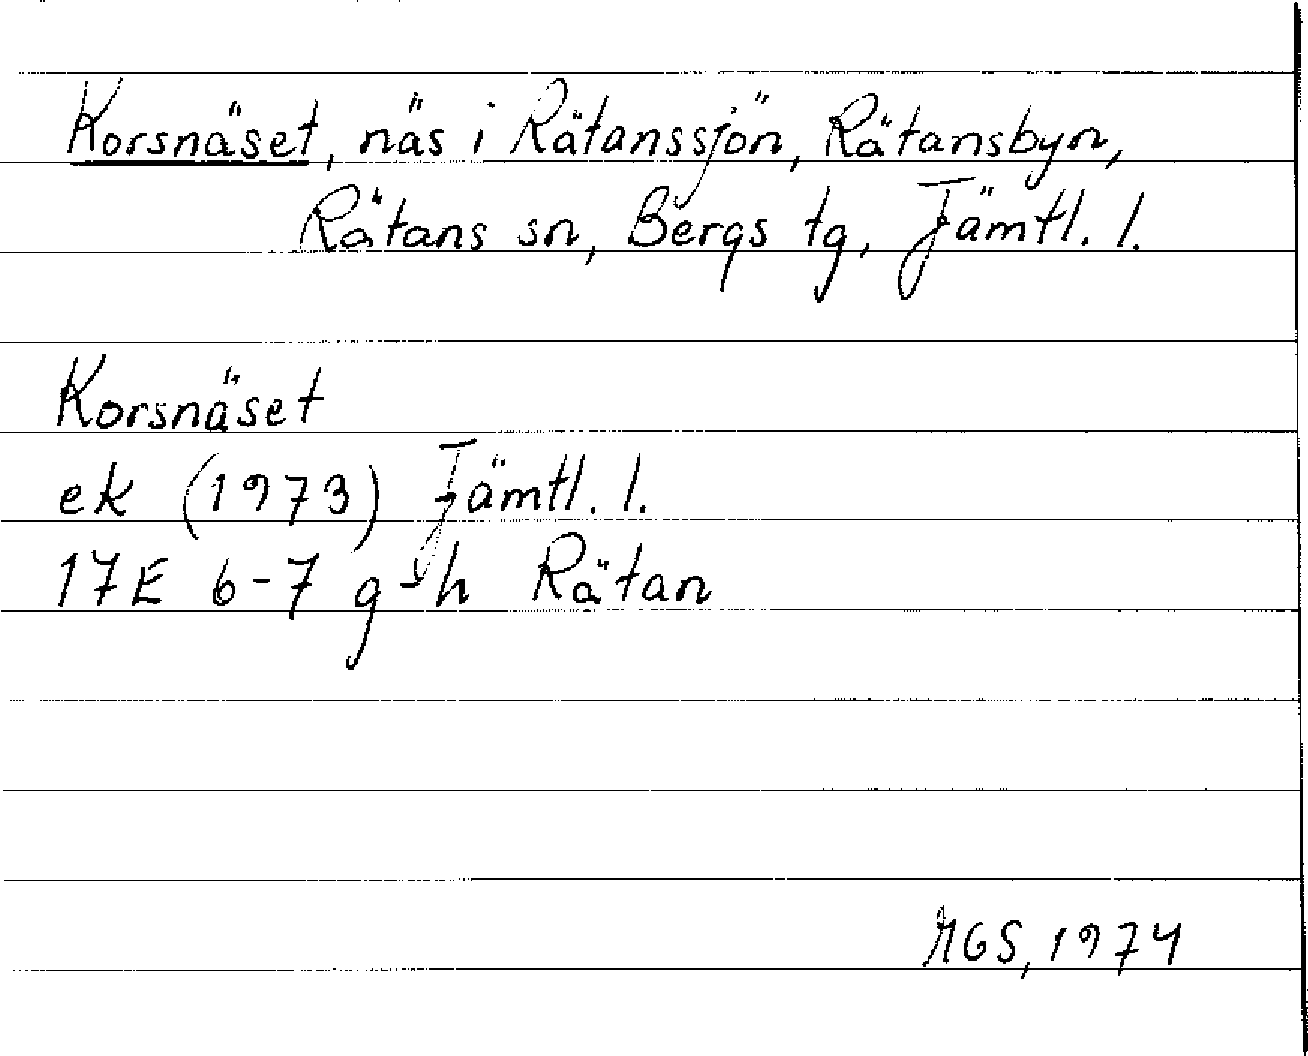 Korsnäset, näs i Rätanssjön, Rätansbyn,
Rätans sn, Bergs tg, Jämtl. l.
Korsnäset
ek (1973) Jämtl. l.
17E 6-7 g-h Rätan
MGS, 1974